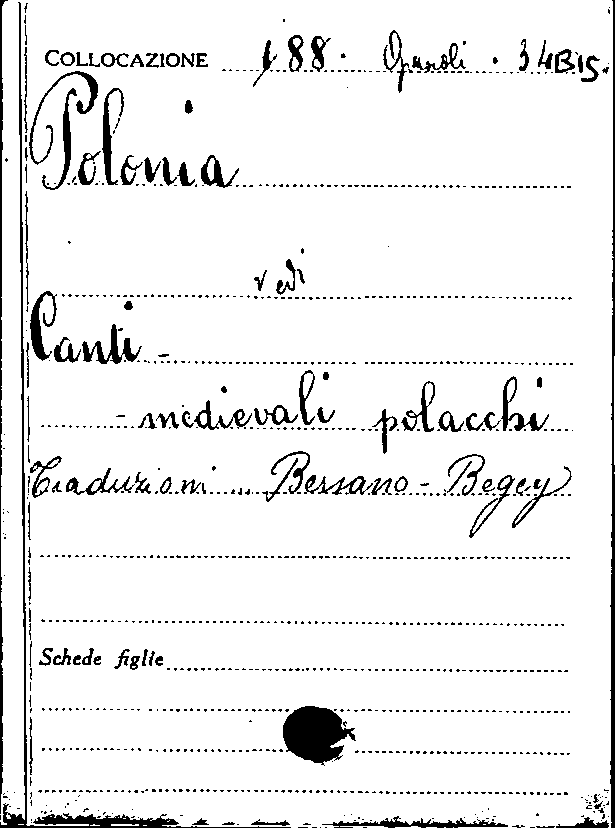 COLLOCAZIONE 188. Opuscoli. 34BIS.
Polonia
vedi
Canti -
- medievali polacchi
Traduzioni ... Bersano - Begey
Schede figlie